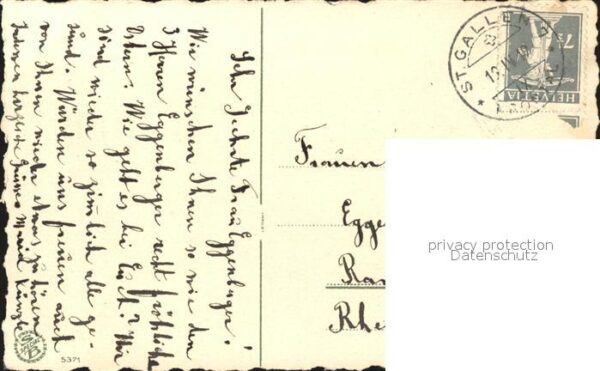 Sehr Geehrte Frau Eggenberger!
Wir wünschen Ihnen so wie den
3 Herren Eggenberger recht fröhliche
Ostern. Wie geht es bei Euch? Wir
sind wieder so zimlich alle ge-
sund. Würden uns freuen auch
von Ihnen wieder etwas zu hören
herzliche Grüsse
5371
Frauen
Egge
Ra
Rhe
ST. GALLEN
HELVETIA
7½
privacy protection
Datenschutz